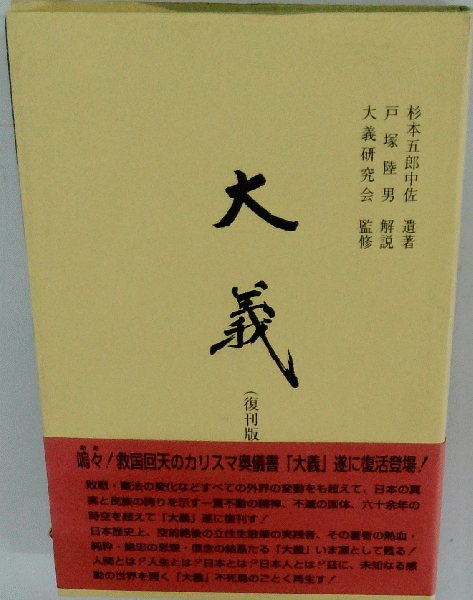 杉本五郎中佐 遺著
戸塚陸男 解説
大義研究会 監修
大義
(復刊版
嗚々!救国回天のカリスマ奥儀書「大義」遂に復活登場!
敗戦・憲法の変化などすべての外界の変動をも超えて、日本の真
実と民族の誇りを示す一貫不動の精神、不滅の国体、六十余年の
時空を超えて「大義」遂に復刊す!
日本歴史上、空前絶後の立往生散華の実践者、その著者の熱血・
純粋・絶忠の思想・信念の結晶たる「大義」いま凛として甦る!
人間とは?人生とは?日本とは?日本人とは?茲に、未知なる感
動の世界を開く「大義」不死鳥のごとく再生す!